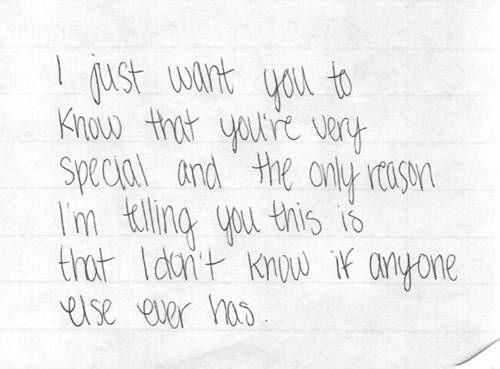 I just want you to
know that you're very
special and the only reason
I'm telling you this is
that I don't know if anyone
else ever has.